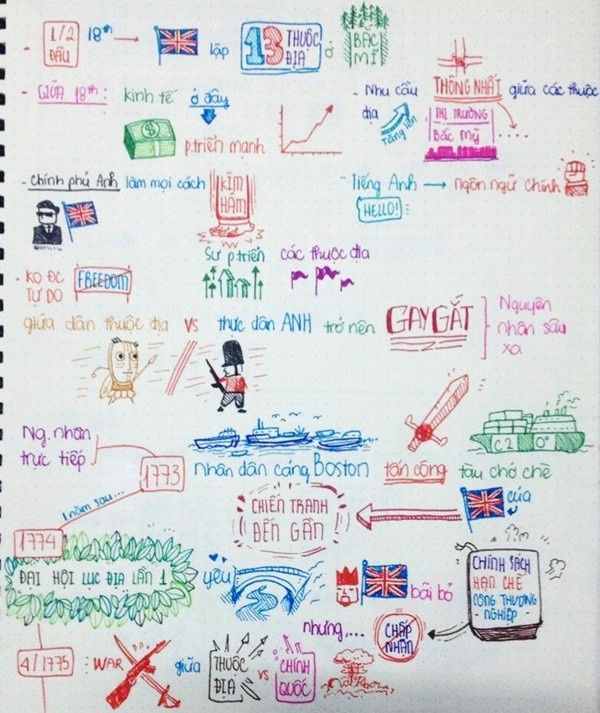 - 1/2 ĐẦU 18th → lập 13 THUỘC ĐỊA ở BẮC MĨ
- GIỮA 18th: kinh tế ở đây p.triển mạnh
- Nhu cầu THỐNG NHẤT giữa các thuộc địa tăng lên THỊ TRƯỜNG Bắc Mỹ ....
- Chính phủ Anh làm mọi cách KÌM HÃM
- Tiếng Anh → ngôn ngữ chính
HELLO!
Sự p.triển các thuộc địa
- KO ĐC TỰ DO FREEDOM
giữa dân thuộc địa VS thực dân ANH trở nên GAY GẮT
Nguyên nhân sâu xa
Ng. nhân trực tiếp
1773 nhân dân cảng Boston tấn công tàu chở chè
C2 0°
của
CHIẾN TRANH ĐẾN GẦN!
1 năm sau...
1774
ĐẠI HỘI LỤC ĐỊA LẦN 1 yêu bãi bỏ
CHÍNH SÁCH HẠN CHẾ CÔNG THƯƠNG - NGHIỆP -
nhưng,... CHẤP NHẬN
4/1775 : WAR giữa THUỘC ĐỊA VS CHÍNH QUỐC